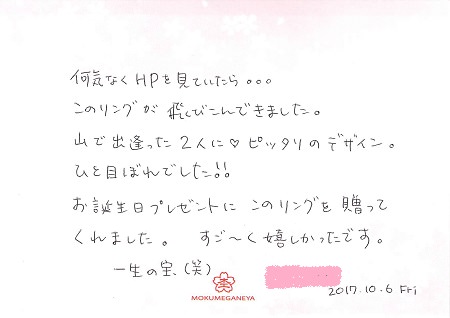 何気なくHPを見ていたら。。。
このリングが飛びこんできました。
山で出逢った2人に♡ピッタリのデザイン。
ひと目ぼれでした!!
お誕生日プレゼントにこのリングを贈って
くれました。 すご〜く嬉しかったです。
一生の宝、(笑)
MOKUMEGANEYA
2017.10.6 Fri